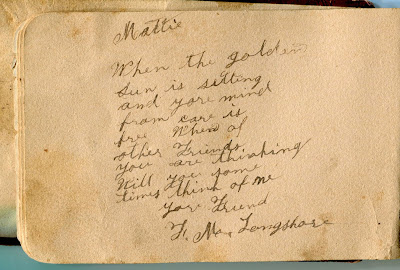 Mattie
When the golden
Sun is setting
and yore mind
from care is
free When of
other Friends,
you are thinking
Will you some
times think of me
yore Friend